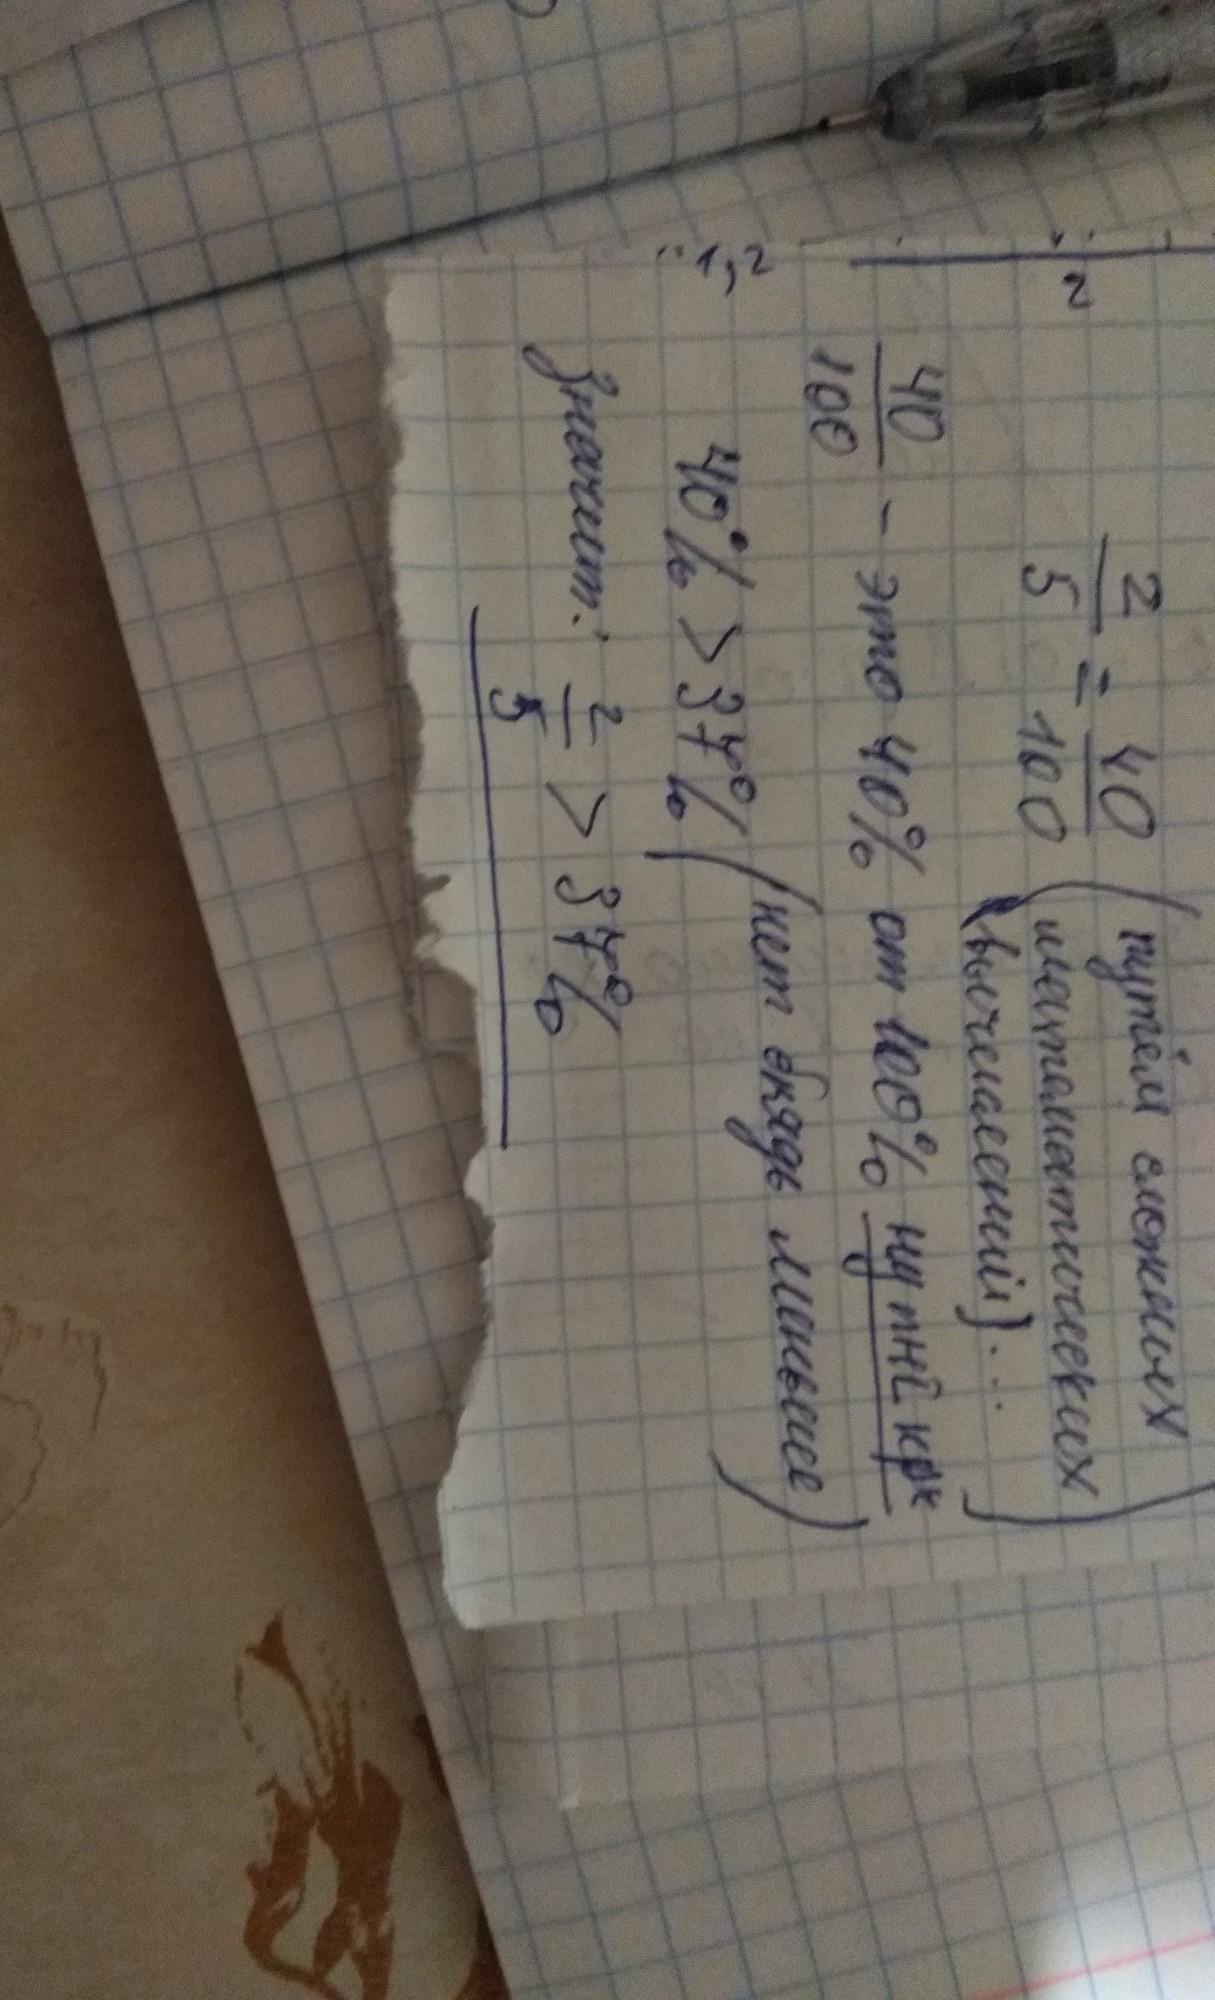 2
2/5 = 40/100 (путём сложных
математических
(вычислений)...)
40/100 - это 40% от 100% ну пнй крч
:1,2
40% > 37% (нет блядь меньше)
значит: 2/5 > 37%